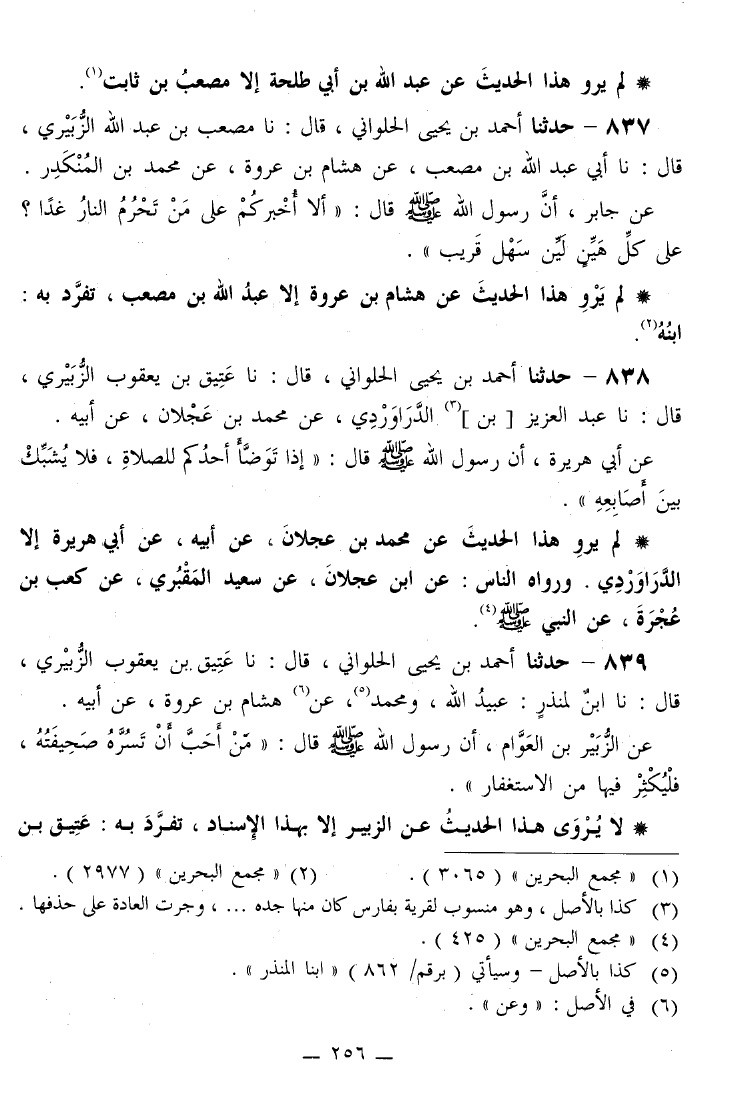 * لم يرو هذا الحديثَ عن عبد الله بن أبي طلحة إلا مصعبُ بن ثابت(١).
٨٣٧ – حدثنا أحمد بن يحيى الحلواني ، قال : نا مصعب بن عبد الله الزُّبَيْري ،
قال : نا أبي عبد الله بن مصعب ، عن هشام بن عروة ، عن محمد بن المُنْكَدِر .
عن جابر ، أنَّ رسول الله ﷺ قال : « ألا أُخْبركُمْ على مَنْ تَحْرُمُ النارُ غدًا ؟
على كلِّ هَيِّنٍ لَيِّن سَهْل قَريب » .
* لم يَرْوِ هذا الحديثَ عن هشام بن عروة إلا عبدُ الله بن مصعب ، تفرَّد به :
ابنُهُ(٢).
٨٣٨ – حدثنا أحمد بن يحيى الحلواني ، قال : نا عَتِيق بن يعقوب الزُّبَيْري ،
قال : نا عبد العزيز [ بن ](٣) الدَّرَاوَرْدِي ، عن محمد بن عَجْلان ، عن أبيه .
عن أبي هريرة ، أن رسول الله ﷺ قال : « إذا تَوَضَّأَ أحدُكم للصلاةِ ، فلا يُشبِّكْ
بينَ أَصَابِعِهِ » .
* لم يروِ هذا الحديثَ عن محمد بن عجلانَ ، عن أبيه ، عن أبي هريرة إلا
الدَّرَاوَرْدِي . ورواه الناس : عن ابن عجلانَ ، عن سعيد المَقْبُري ، عن كعب بن
عُجْرَةَ ، عن النبي ﷺ(٤).
٨٣٩ – حدثنا أحمد بن يحيى الحلواني ، قال : نا عَتِيق بن يعقوب الزُّبَيْري ،
قال : نا ابنٌ لمنذرٍ : عبيدُ الله ، ومحمد(٥)، عن(٦) هشام بن عروة ، عن أبيه .
عن الزُّبَيْر بن العَوَّام ، أن رسول الله ﷺ قال : « مَنْ أَحَبَّ أَنْ تَسُرَّهُ صَحِيفَتُهُ ،
فلْيُكْثِرْ فيها من الاستغفار » .
* لا يُرْوَى هذا الحديثُ عن الزبير إلا بهذا الإسناد ، تفرَّدَ به : عَتِيق بن
(١) « مجمع البحرين » ( ٣٠٦٥ ) . (٢) « مجمع البحرين » ( ٢٩٧٧ ) .
(٣) كذا بالأصل ، وهو منسوب لقرية بفارس كان منها جده ... ، وجرت العادة على حذفها .
(٤) « مجمع البحرين » ( ٤٢٥ ) .
(٥) كذا بالأصل – وسيأتي ( برقم/ ٨٦٢ ) « ابنا المنذر » .
(٦) في الأصل : « وعن » .
— ٢٥٦ —